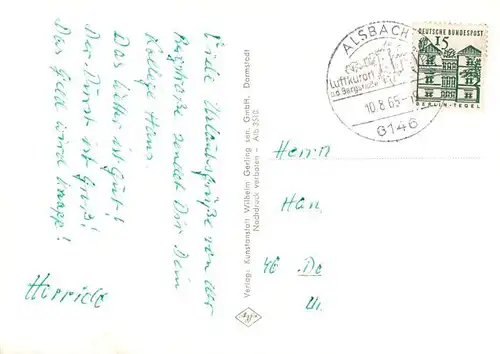 Viele Urlaubsgrüße von der
Bergstraße sendet Dir Dein
Kollege Hans.
Das Wetter ist Gut!
Der Durst ist Groß!
Das Geld wird knapp!
Verlag: Kunstanstalt Wilhelm Gerling sen. GmbH, Darmstadt
Nachdruck verboten - Alb 3510
ALSBACH
Luftkurort
a.d. Bergstraße
10.8.65
6146
DEUTSCHE BUNDESPOST
15
BERLIN-TEGEL
Herrn
Han
46 Do